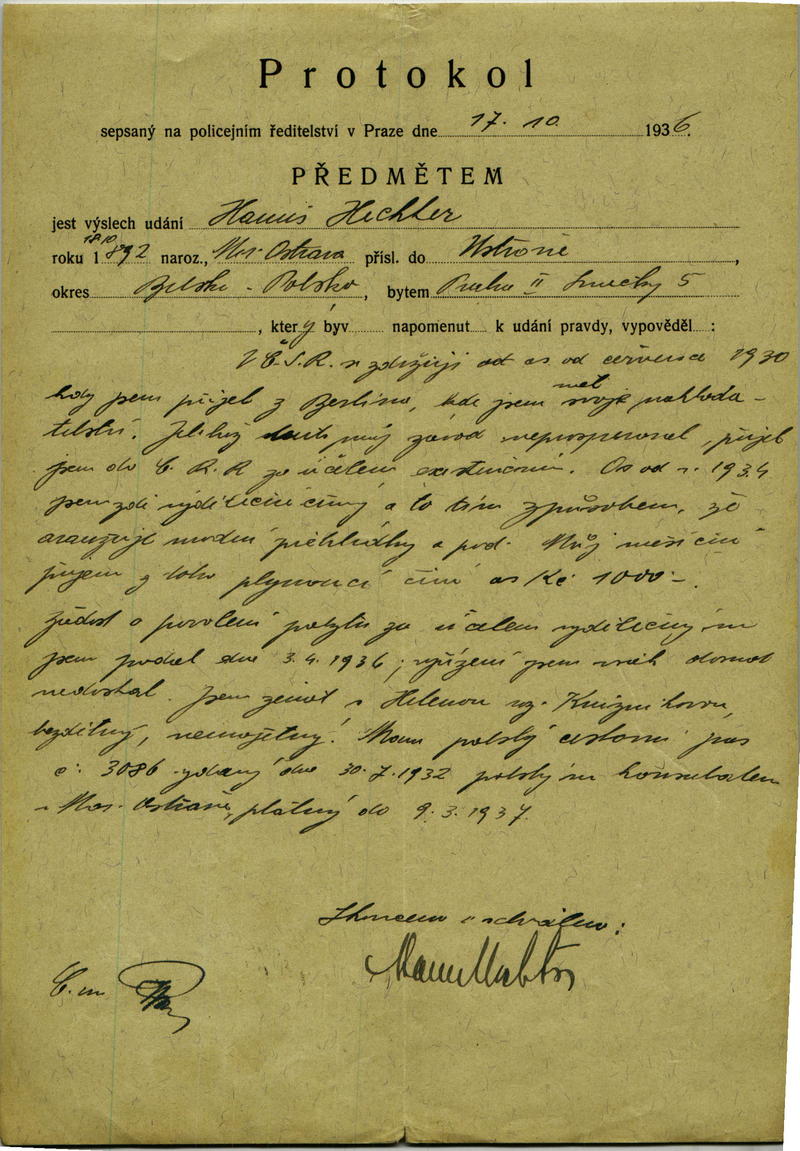 Protokol
sepsaný na policejním ředitelství v Praze dne 17. 10. 1936.
PŘEDMĚTEM
jest výslech udání Hanuš Hechter
18.10.
roku 1892 naroz., Mor. Ostrava přísl. do Ustroně,
okres Bilsko - Polsko, bytem Praha II Smečky 5
, který byv napomenut k udání pravdy, vypověděl :
V Č.S.R. se zdržuji od as od července 1930
kdy jsem přijel z Berlína, kde jsem měl svoje naklada-
telství. Jelikož můj závod neprosperoval, přijel
jsem do Č. R. za účelem existenčním. As od r. 1934
jsem zde výdělečně činný a to tím způsobem, že
aranžuji modní přehlídky a pod. Můj měsíční
příjem z toho plynoucí činí as Kč 1000.-.
Žádost o povolení pobytu za účelem výdělečným
jsem podal dne 3.4.1936; vyřízení jsem však dosud
nedostal. Jsem ženat s Helenou roz.
bezdětný, nemajetný. Mám polský cestovní pas
č. 3086 vydaný dne 30.7.1932 polským konsulátem
v Mor. Ostravě, platný do 9.3.1937.
Skončeno a schváleno: